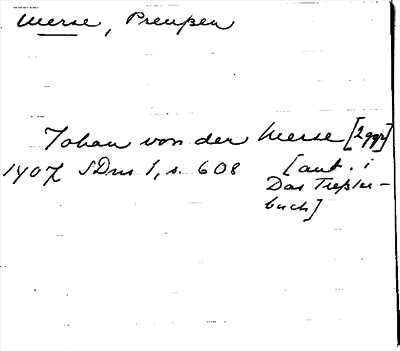 Merse, Preußen
Johan von der Merse [2ggr]
1407 SDns 1, s. 608 [ant. i
Das Treßler-
buch]